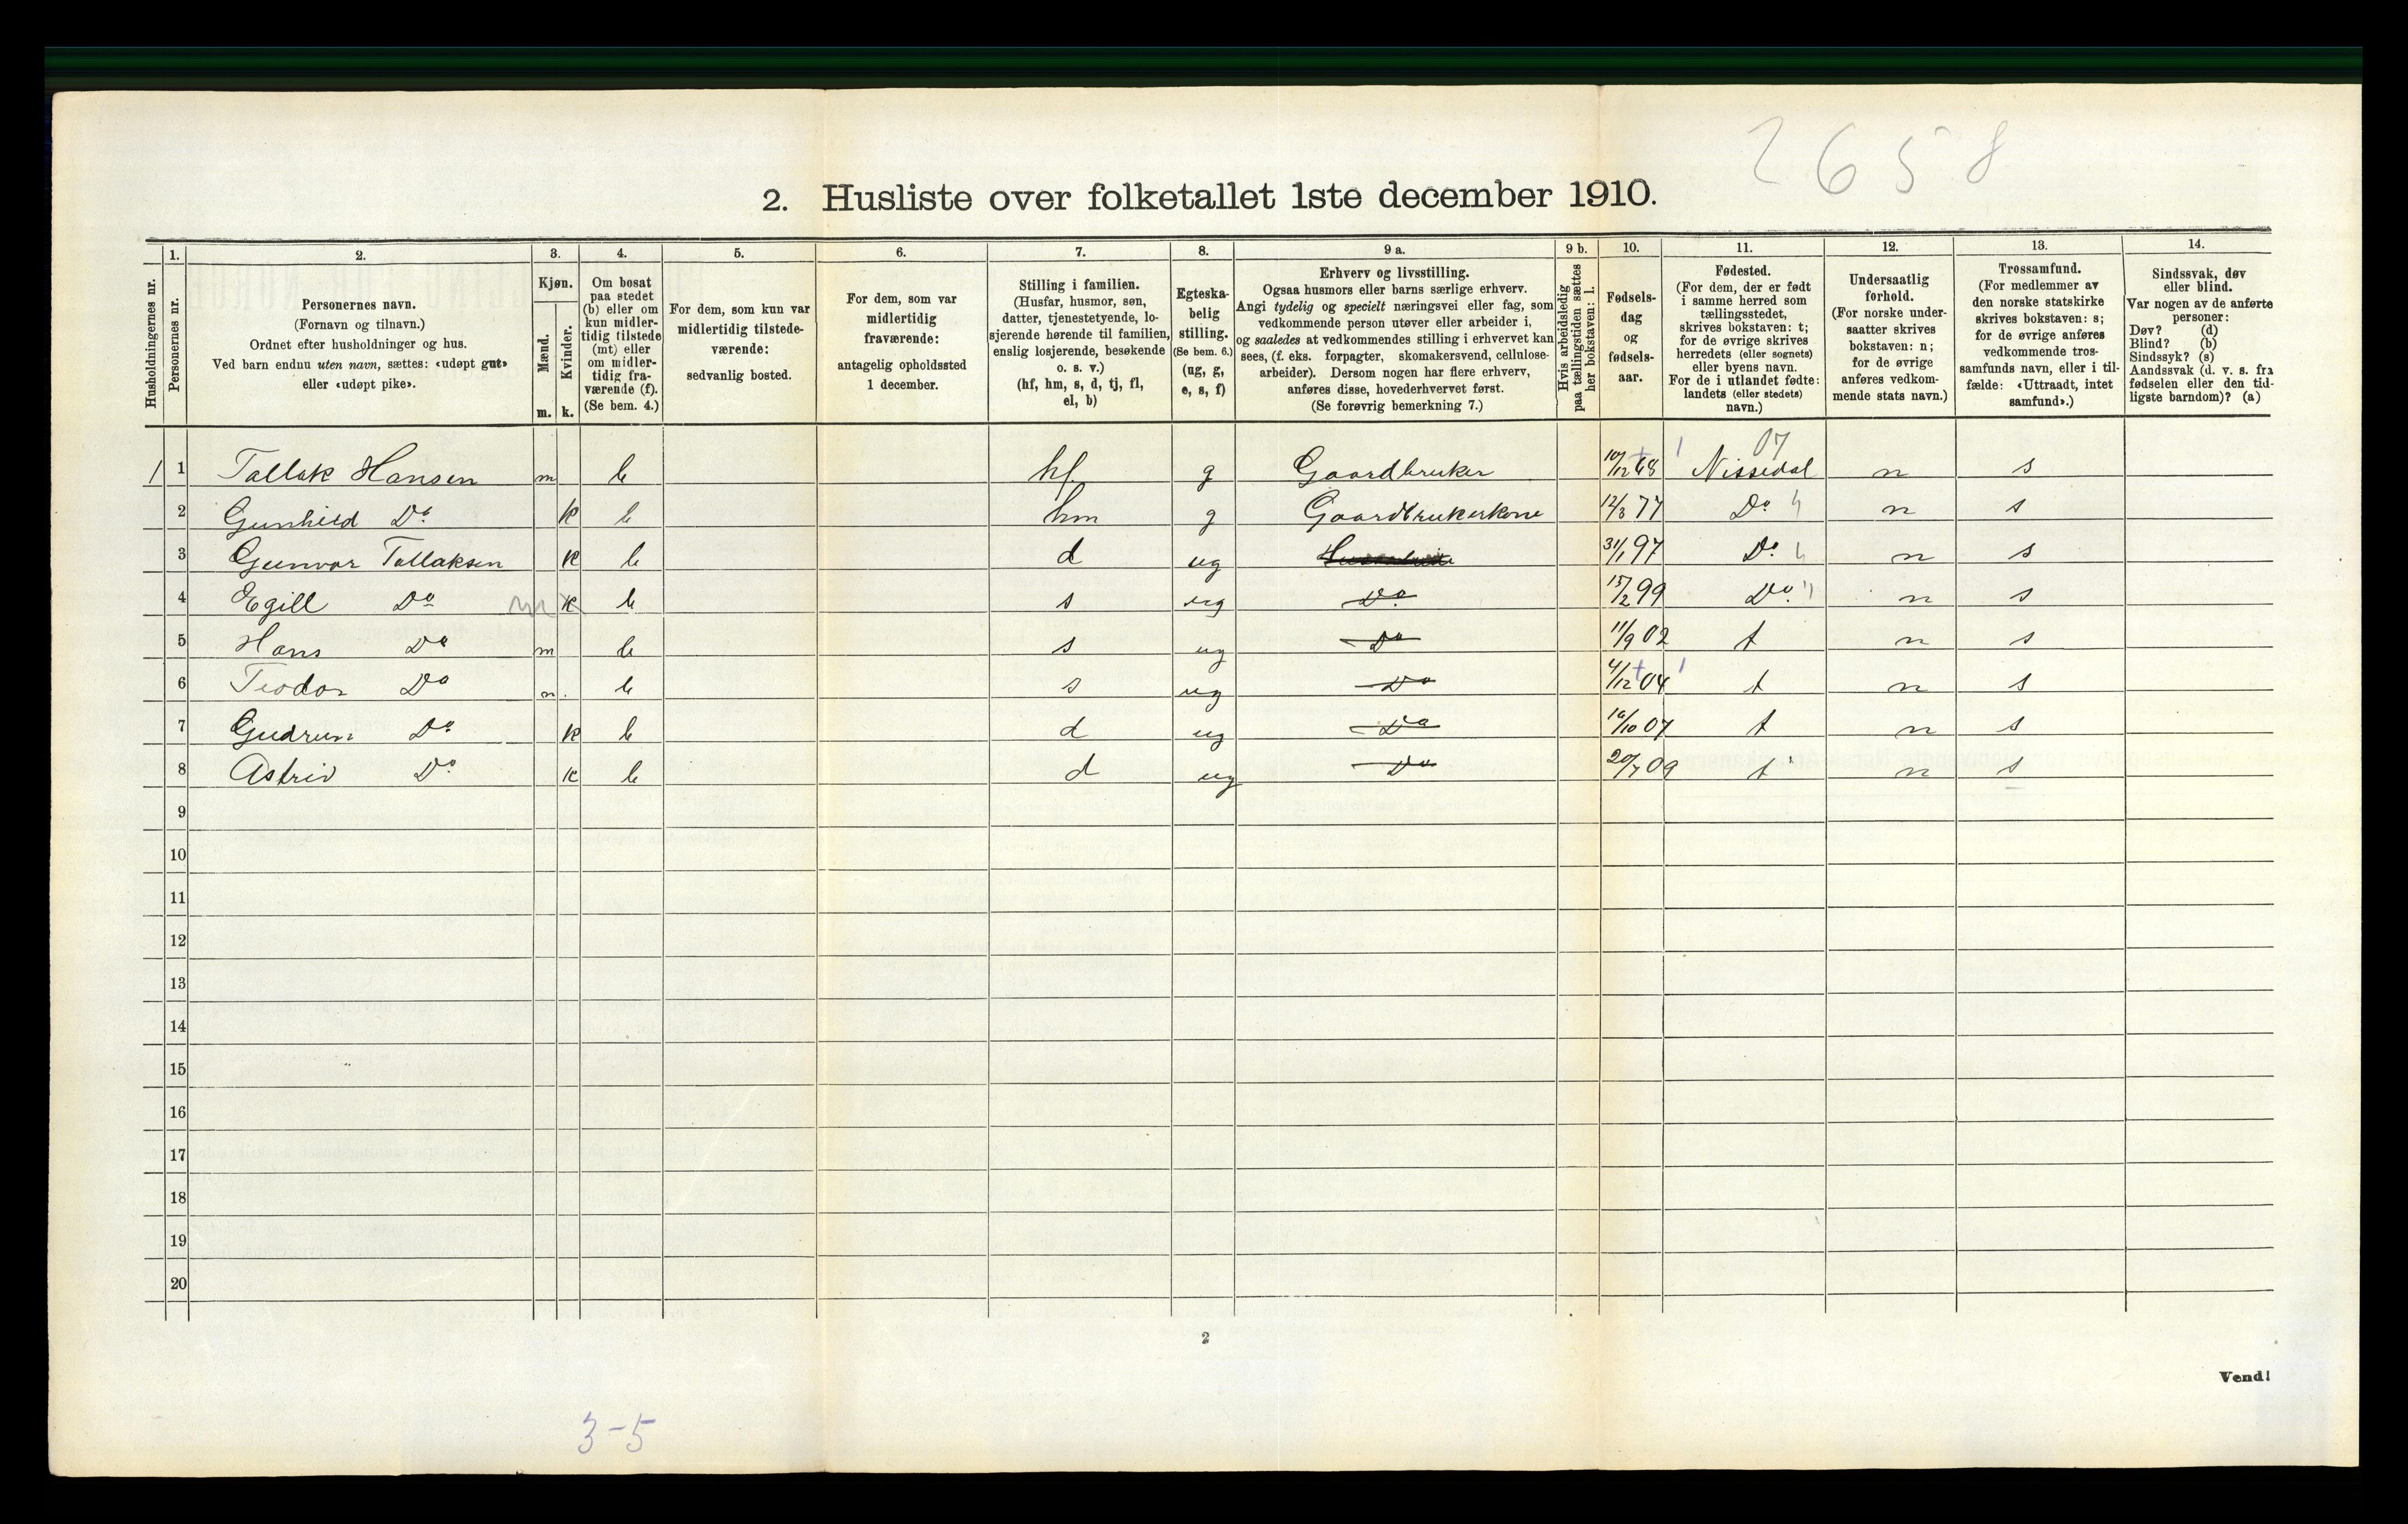 2658
2. Husliste over folketallet 1ste december 1910.
Husholdningernes nr.
1. Personernes nr.
2. Personernes navn. (Fornavn og tilnavn.) Ordnet efter husholdninger og hus. Ved barn endnu uten navn, sættes: «udøpt gut» eller «udøpt pike».
3. Kjøn. Mænd. m. Kvinder. k.
4. Om bosat paa stedet (b) eller om kun midler-tidig tilstede (mt) eller om midler-tidig fra-værende (f). (Se bem. 4.)
5. For dem, som kun var midlertidig tilstede-værende: sedvanlig bosted.
6. For dem, som var midlertidig fraværende: antagelig opholdssted 1 december.
7. Stilling i familien. (Husfar, husmor, søn, datter, tjenestetyende, lo-sjerende hørende til familien, enslig losjerende, besøkende o. s. v.) (hf, hm, s, d, tj, fl, el, b)
8. Egteska-belig stilling. (Se bem. 6.) (ug, g, e, s, f)
9 a. Erhverv og livsstilling. Ogsaa husmors eller barns særlige erhverv. Angi tydelig og specielt næringsvei eller fag, som vedkommende person utøver eller arbeider i, og saaledes at vedkommendes stilling i erhvervet kan sees, (f. eks. forpagter, skomakersvend, cellulose-arbeider). Dersom nogen har flere erhverv, anføres disse, hovederhvervet først. (Se forøvrig bemerkning 7.)
9 b. Hvis arbeidsledig paa tællingstiden sættes her bokstaven: l.
10. Fødsels-dag og fødsels-aar.
11. Fødested. (For dem, der er født i samme herred som tællingsstedet, skrives bokstaven: t; for de øvrige skrives herredets (eller sognets) eller byens navn. For de i utlandet fødte: landets (eller stedets) navn.)
12. Undersaatlig forhold. (For norske under-saatter skrives bokstaven: n; for de øvrige anføres vedkom-mende stats navn.)
13. Trossamfund. (For medlemmer av den norske statskirke skrives bokstaven: s; for de øvrige anføres vedkommende tros-samfunds navn, eller i til-fælde: «Uttraadt, intet samfund».)
14. Sindssvak, døv eller blind. Var nogen av de anførte personer: Døv? (d) Blind? (b) Sindssyk? (s) Aandssvak (d. v. s. fra fødselen eller den tid-ligste barndom)? (a)
07
1 1 Tallak Hansen m b hf g Gaardbruker 10/12 68 Nissedal n s
2 Gunhild Do k b hm g Gaardbrukerkone 12/3 77 Do n s
3 Gunvor Tallaksen k b d ug 31/1 97 Do n s
4 Egill Do m k b s ug Do 15/2 99 Do n s
5 Hans Do m b s ug Do 11/9 02 t n s
6 Teodor Do m b s ug Do 4/12 04 t n s
7 Gudrun Do k b d ug Do 16/10 07 t n s
8 Astrid Do k b d ug Do 20/7 09 t n s
9
10
11
12
13
14
15
16
17
18
19
20
2
Vend!
3-5